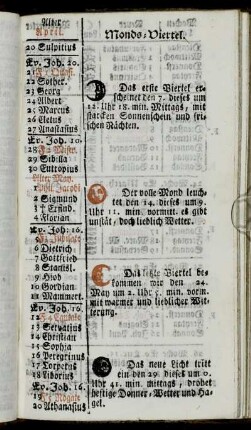 Alter
April.
20 Sulpitius
Ev. Joh. 20.
21
22 Sother.
23 Georg
24 Albert
25 Marcus
26 Cletus
27 Anastasius
Ev. Joh. 10.
28
29 Sibilla
30 Eutropius
Alter May.
Phil. Jacobi
2 Sigmund
3 † Erfind.
4 Florian
Ev. Joh. 16.
6 Dietrich
7 Gottfried
8 Stanisl.
9 Hiob
10 Gordian
11 Mammert.
Ev. Joh. 16.
12 F4 Cantate
13 Servatius
14 Christian
15 Sophia
16 Peregrinus
17
18 Liborius
Ev. Joh. 16.
19 F5 Rogate
20 Athanasius
Monds-Viertel.
Das erste Viertel er-
scheinet den 7. dieses um
12. Uhr 18. min. Mittags, mit
starcken Sonnenschein und fri-
schen Nächten.
Der volle Mond leuch-
tet den 14. dieses um 9.
Uhr 11. min. vormitt. es gibt
unstät, doch lieblich Wetter.
Das letzte Viertel be-
kommen wir den 24.
May um 2. Uhr 5. min. vorm.
mit warmer und lieblicher Wit-
terung.
Das neue Licht tritt
ein den 29. dieses um 0.
Uhr 41. min. mittags, drohet
hefftige Donner-Wetter und Ha-
gel.